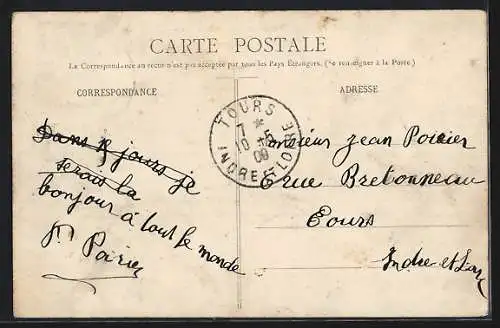 CARTE POSTALE
La Correspondance au recto n'est pas acceptée par tous les Pays Étrangers. (Se renseigner à la Poste.)
CORRESPONDANCE
ADRESSE
TOURS
7 *
10 - 5
09
INDRE ET LOIRE
Dans 8 jours je
serais la
bonjour à tout le monde
Poirier
Monsieur Jean Poirier
rue Bretonneau
Tours
Indre et Loire